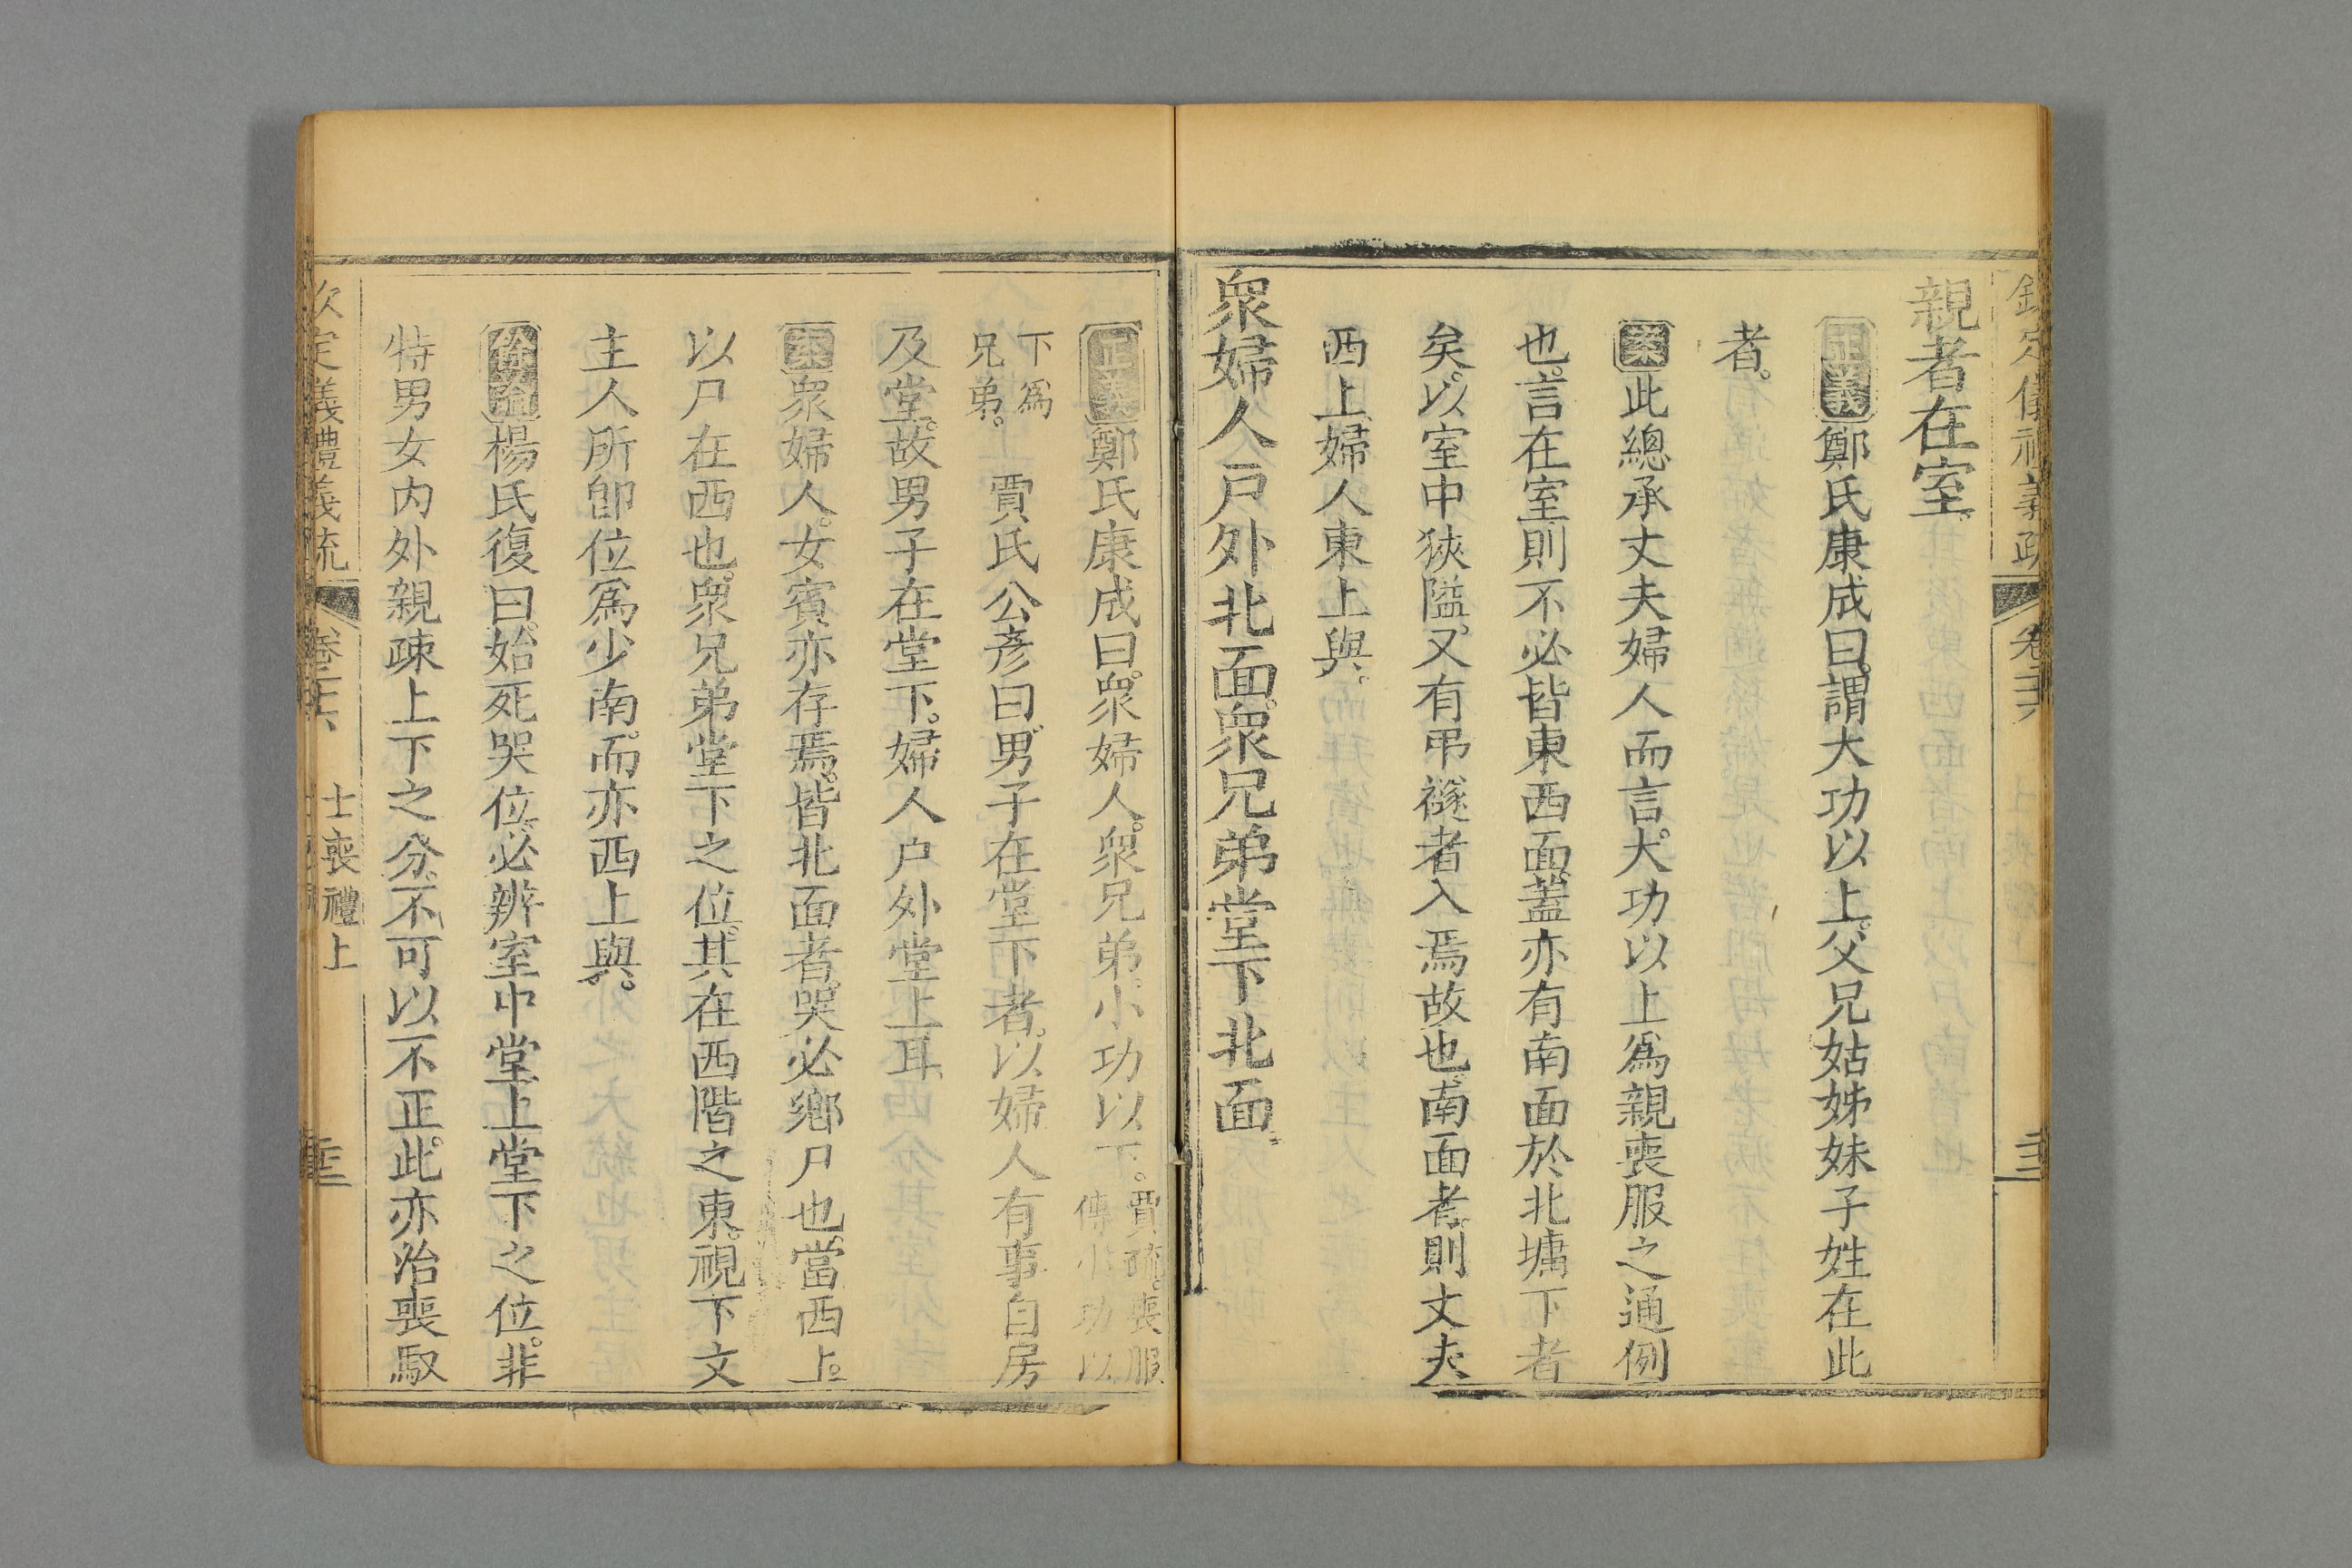 親者在室
正義鄭氏康成曰謂大功以上父兄姑姊妹子姓在此
者。
案此總承丈夫婦人而言大功以上爲親喪服之通例
也言在室則不必皆東西面蓋亦有南面於北墉下者
矣以室中狹隘又有弔襚者入焉故也南面者則丈夫
西上婦人東上與
衆婦人戶外北面衆兄弟堂下北面
正義鄭氏康成曰衆婦人衆兄弟小功以下。賈疏。喪服
傳小功以
下爲
兄弟。
賈氏公彥曰男子在堂下者以婦人有事自房
及堂。故男子在堂下。婦人户外堂上耳
案衆婦人女賓亦存焉皆北面者哭必鄉尸也當西上。
以尸在西也衆兄弟堂下之位其在西階之東視下文
主人所卽位爲少南而亦西上與。
餘論楊氏復曰始死哭位必辨室中堂上堂下之位。非
特男女内外親疎上下之分不可以不正此亦治喪馭
士喪禮上